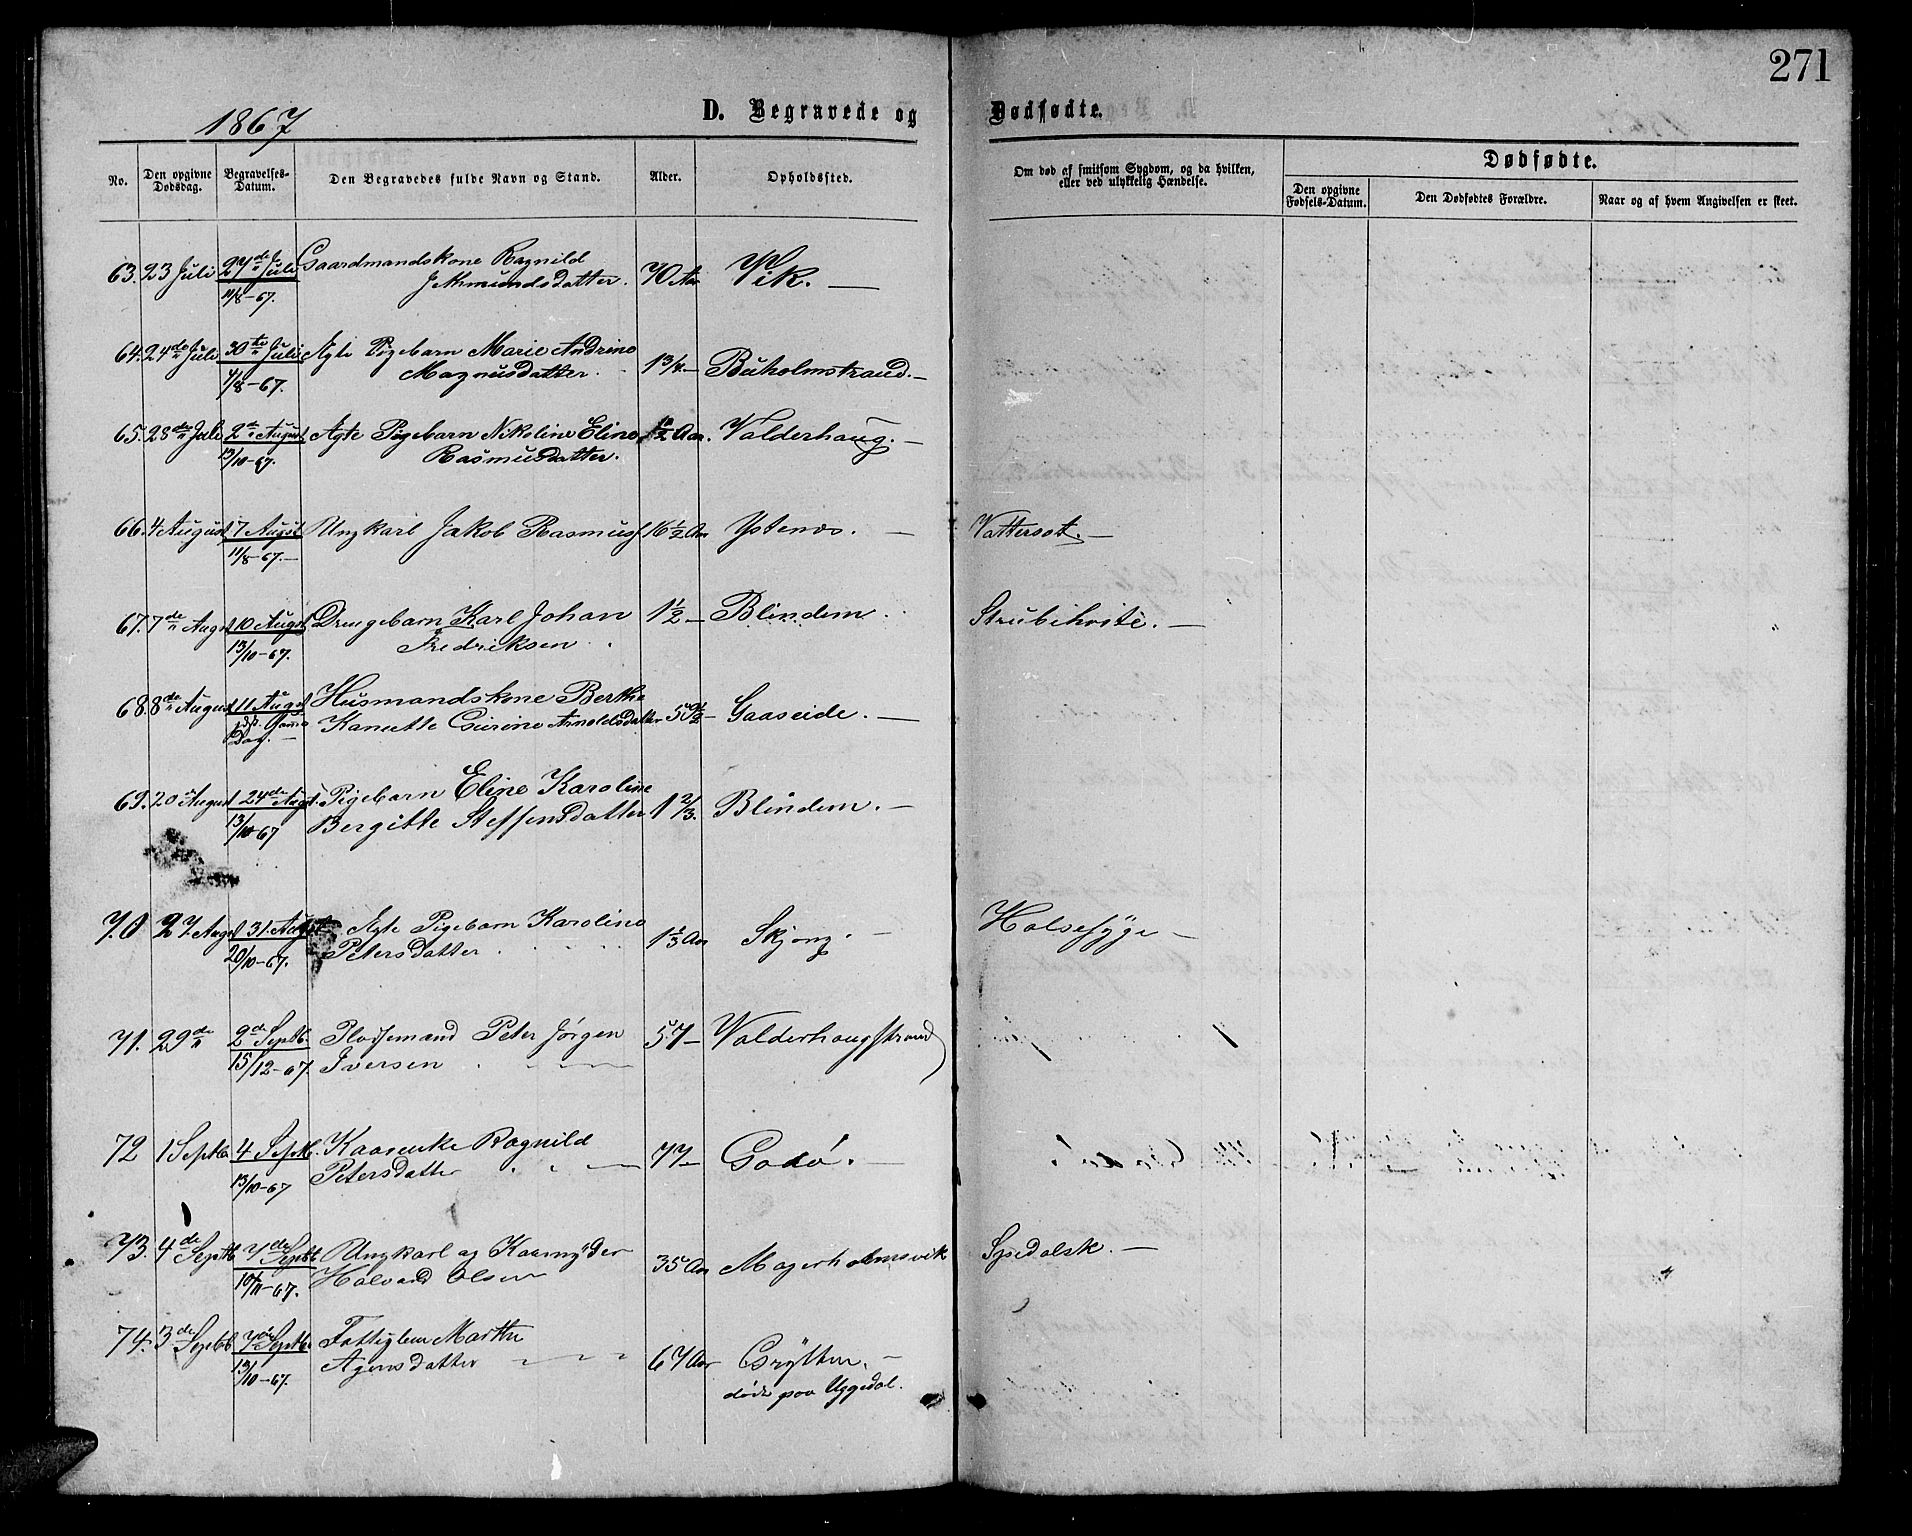 271
1867
D. Begravede og Dødfødte.
No.
Den opgivne Dødsdag.
Begravelses-Datum.
Den Begravedes fulde Navn og Stand.
Alder.
Opholdssted.
Om død af smitsom Sygdom, og da hvilken, eller ved ulykkelig Hændelse.
Dødfødte.
Den opgivne Fødsels-Datum.
Den Dødfødtes Forældre.
Naar og af hvem Angivelsen er skeet.
63. 23 Juli 27de Juli Gaardmandskone Ragnild
11/8-67. Jetmundsdatter. 70 Aar Vik. —
64. 24de Juli 30te Juli Ægte Pigebarn Marie Andrine
4/8-67. Magnusdatter. 1 3/4 — Buholmstrand. —
65. 28de Juli 2de August Ægte Pigebarn Nikoline Eline 1/2 Aar. Valderhaug. —
13/10-67. Rasmusdatter.
66. 4 August 7 August Ungkarl Jakob Rasmuss 16 1/2 Aar Ystenæs. — Vattersot. —
11/8-67. —
67. 7de August 10 August Drengebarn Karl Johan 1 1/2 — Blindem. Strubehoste. —
13/10-67. Fredriksen
68. 8de August 11 August Husmandskone Berthe
Kanutte Gurine Arnoldsdatter 50 1/2 — Gaaseide. —
Dag. —
69. 20 August 24de August Pigebarn Eline Karoline
13/10-67 Bergitte Steffensdatter 1 2/3. Blindem. —
70 27 August 31. August Ægte Pigebarn Karoline
20/10-67. Petersdatter. 1 1/3 Aar Skjong. — Halsesyge —
71. 29de 2de Septb. Plodsmand Peter Jørgen 57 — Valderhaugstrand
15/12-67. Iversen
72 1 Septb 4 Septb. Kaarenke Ragnild 77 — Godø. —
13/10-67 Petersdatter
73. 4de Septb 7de Septb. Ungkarl og Kaarnyder
10/11-67. Halvard Olsen 35 Aar Magerholmsvik Spedalsk. —
74. 3de Septb 7de Septb. Fattiglem Marthe
13/10-67. Agensdatter 67 Aar Grytten. —
døde paa Uggedal.